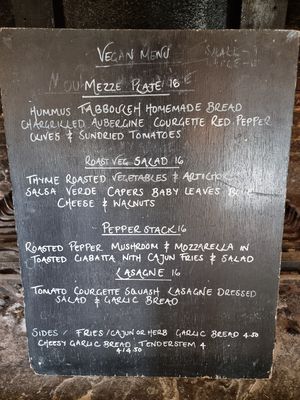 VEGAN MENU
SMALL
MEZZE PLATE 16
HUMMUS TABBOULEH HOMEMADE BREAD
CHARGRILLED AUBERGINE COURGETTE RED PEPPER
OLIVES & SUNDRIED TOMATOES
ROAST VEG SALAD 16
THYME ROASTED VEGETABLES &
SALSA VERDE CAPERS BABY LEAVES BLUE
CHEESE & WALNUTS
PEPPER STACK 16
ROASTED PEPPER MUSHROOM & MOZZARELLA IN
TOASTED CIABATTA WITH CAJUN FRIES & SALAD
LASAGNE 16
TOMATO COURGETTE SQUASH LASAGNE DRESSED
SALAD & GARLIC BREAD
SIDES / FRIES / CAJUN OR HERB GARLIC BREAD 4.50
CHEESY GARLIC BREAD TENDERSTEM 4
4/4.50